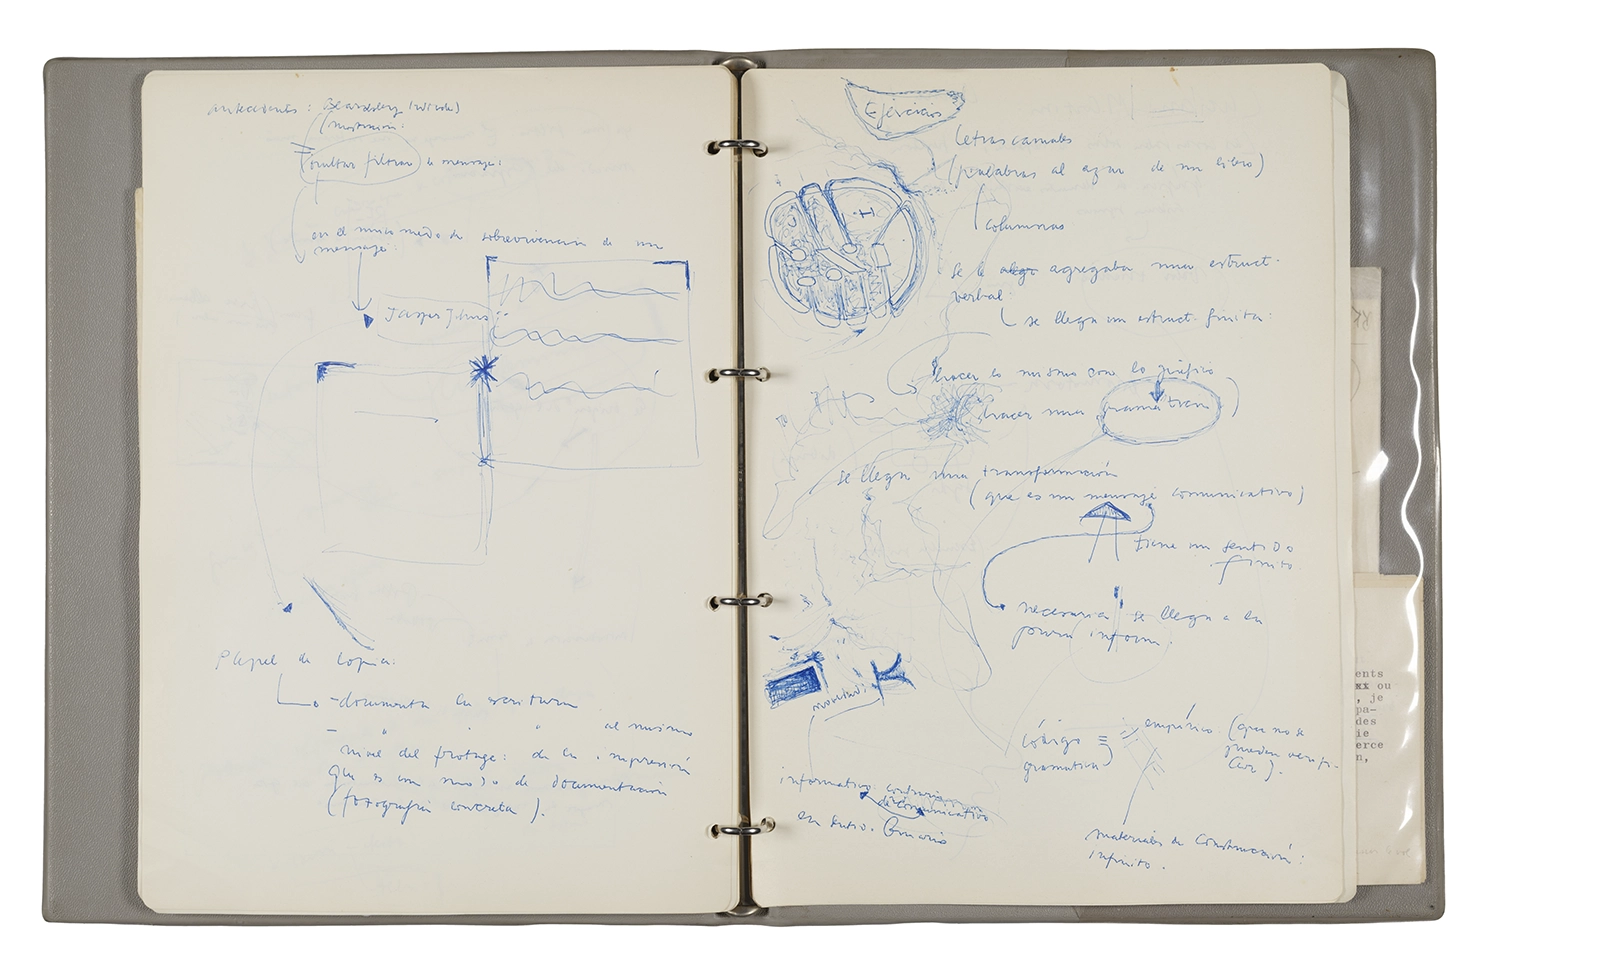 antecedents: Beardsley
ocultar filtrar le mensaje:
en el único modo de sobrevivencia de un
mensaje:
Jasper Johns:
Papel de copia:
- documenta la escritura
- " " al mismo
nivel del frotage: de la impresión
que es un modo de documentación
(fotografía concreta).
Ejercicios
Letras casuales
(palabras al azar de un libro)
columnas
se le agregaba una estruct.
verbal:
se llega un estruct. finita:
hacer lo mismo con lo gráfico
hacer una
se llega una transformación
(que es un mensaje comunicativo)
tiene un sentido
finito.
necesaria se llega a la
pura inform.
código =
gramatica)
empírico. (que no se
pueden verifi-
car).
informativo
de comunicativo
en sentido. Binario
materiales de construcción:
infinito.
ents
xx ou
, je
pa-
des
ie
erce
n,